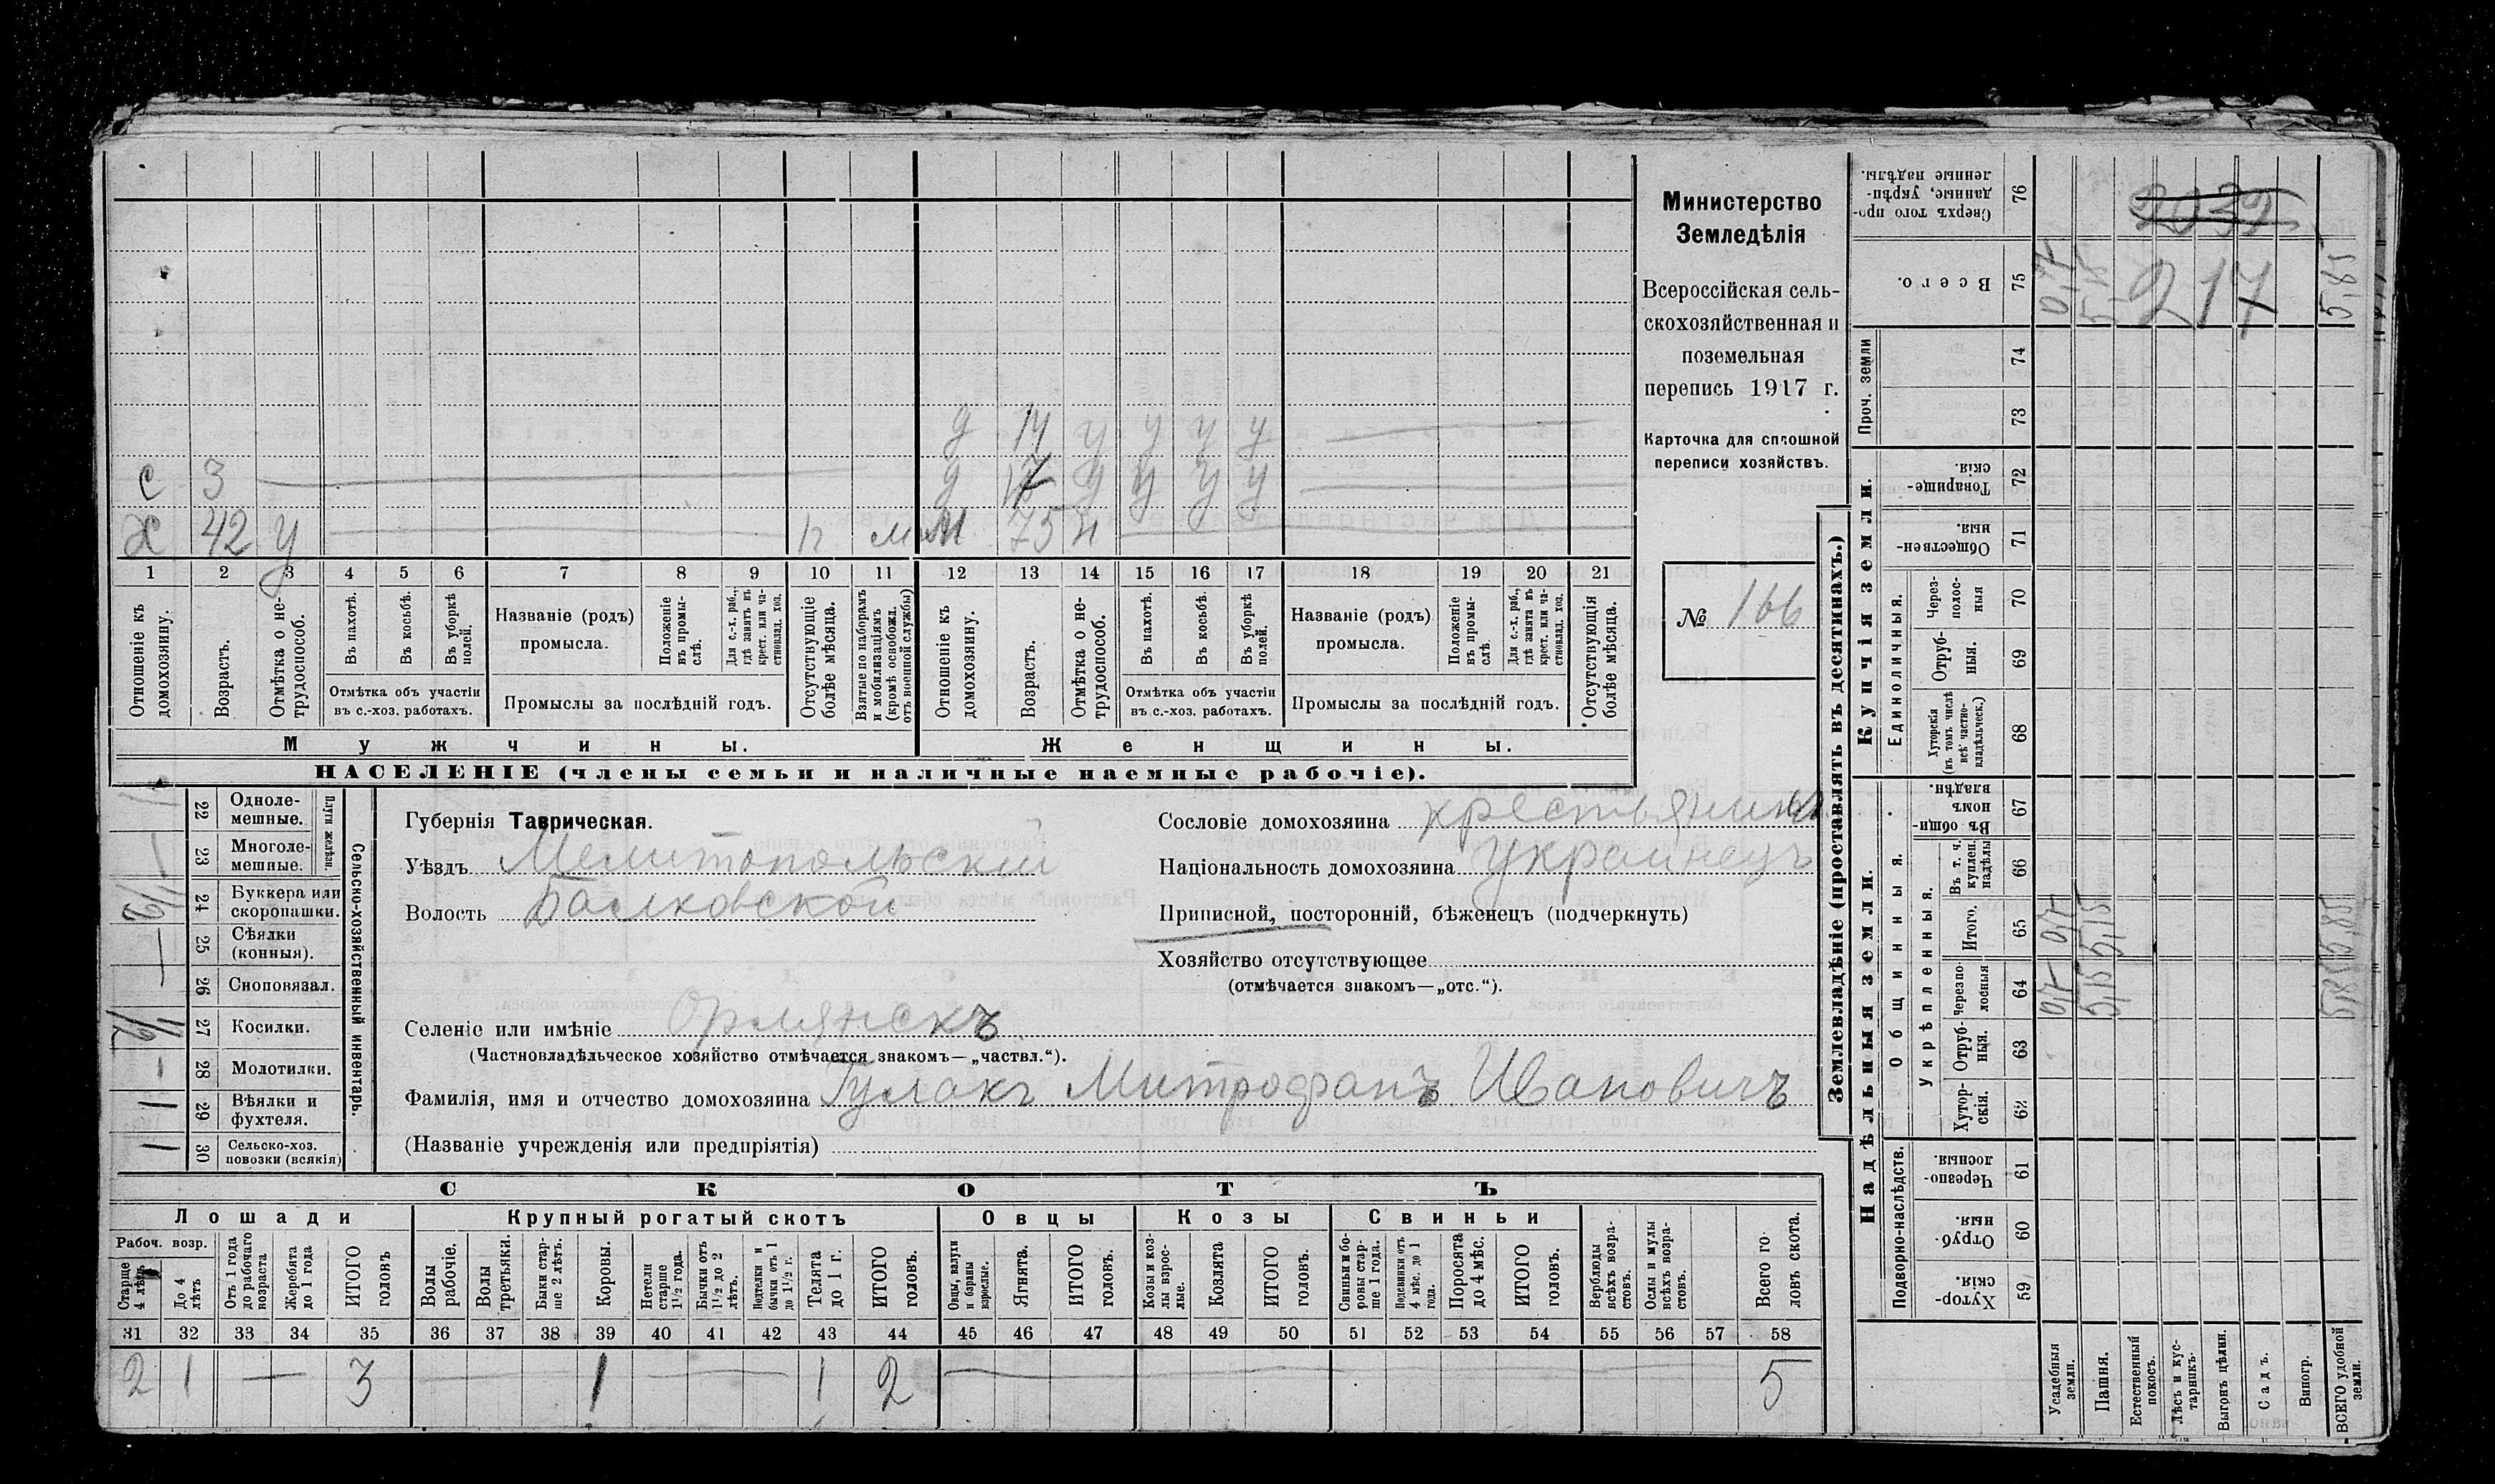 Министерство
Земледѣлія
Всероссійская сель-
скохозяйственная и
поземельная
перепись 1917 г.
Карточка для сплошной
переписи хозяйствъ.
№ 166
д 14 у у у у
с 3 д у у у
х 42 у п м 75 н
1 2 3 4 5 6 7 8 9 10 11 12 13 14 15 16 17 18 19 20 21
Отношеніе къ домохозяину.
Возрастъ.
Отмѣтка о не-трудоспособ.
Въ пахотѣ.
Въ косьбѣ.
Въ уборкѣ полей.
Отмѣтка объ участіи
въ с.-хоз. работахъ.
Названіе (родъ)
промысла.
Положеніе въ промы-слѣ.
Для с.-х. раб., гдѣ занятъ въ крест. или ча-стновлад. хоз.
Промыслы за послѣдній годъ.
Отсутствующіе болѣе мѣсяца.
Взятые по наборамъ и мобилизаціямъ (кромѣ освобожд. отъ военной службы)
Отношеніе къ домохозяину.
Возрастъ.
Отмѣтка о не-трудоспособ.
Въ пахотѣ.
Въ косьбѣ.
Въ уборкѣ полей.
Отмѣтка объ участіи
въ с.-хоз. работахъ.
Названіе (родъ)
промысла.
Положеніе въ промы-слѣ.
Для с.-х. раб., гдѣ занята въ крест. или ча-стновлад. хоз.
Промыслы за послѣдній годъ.
Отсутствующія болѣе мѣсяца.
Мужчины.
Женщины.
НАСЕЛЕНІЕ (члены семьи и наличные наемные рабочіе).
Сельско-хозяйственный инвентарь.
Плуги желѣзн.
22 Одноле-мешные.
23 Многоле-мешные.
24 Буккера или скоропашки.
25 Сѣялки (конныя).
26 Сноповязал.
1/2 27 Косилки.
28 Молотилки.
1 29 Вѣялки и фухтеля.
1 30 Сельско-хоз. повозки (всякія)
Губернія Таврическая.
Уѣздъ Мелитопольскій
Волость Балковской
Сословіе домохозяина крестьянинъ
Національность домохозяина украинецъ
Приписной, посторонній, бѣженецъ (подчеркнуть)
Хозяйство отсутствующее
(отмѣчается знакомъ—„отс.“).
Селеніе или имѣніе Орлянскъ
(Частновладѣльческое хозяйство отмѣчается знакомъ—„частвл.“).
Фамилія, имя и отчество домохозяина Гулакъ Митрофанъ Ивановичъ
(Названіе учрежденія или предпріятія)
СКОТЪ
Лошади
Крупный рогатый скотъ
Овцы
Козы
Свиньи
Рабоч. возр.
Старше 4 лѣтъ
До 4 лѣтъ
Отъ 1 года до рабочаго возраста
Жеребята до 1 года
ИТОГО головъ
Волы рабочіе.
Волы третьяки.
Быки стар-ше 2 лѣтъ.
Коровы.
Нетели старше 1 1/2 года.
Бычки отъ 1 1/2 до 2 лѣтъ.
Подтелки и бычки отъ 1 до 1 1/2 г.
Телята до 1 г.
ИТОГО головъ.
Овцы, валухи и бараны взрослые.
Ягнята.
ИТОГО головъ.
Козы и коз-лы взрос-лые.
Козлята
ИТОГО головъ.
Свиньи и бо-ровы стар-ше 1 года.
Подсвинки отъ 4 мѣс. до 1 года.
Поросята до 4 мѣс.
ИТОГО головъ.
Верблюды всѣхъ возра-стовъ.
Ослы и мулы всѣхъ возра-стовъ.
Всего го-ловъ скота.
31 32 33 34 35 36 37 38 39 40 41 42 43 44 45 46 47 48 49 50 51 52 53 54 55 56 57 58
2 1 — 3 — 1 — 1 2 — 5
Землевладѣніе (проставлять въ десятинахъ.)
Надѣльныя земли.
Купчія земли.
Проч. земли
Подворно-наслѣдств.
Общинныя.
Укрѣпленныя.
Единоличныя.
Сверхъ того про-данные, укрѣп-ленные надѣлы. 76 2039
Всего. 75 0,7 5,15 217 5,85
74
73
Товарище-скія. 72
Обществен-ныя. 71
Через-полос-ныя 70
Отруб-ныя. 69
Хуторскія (въ томъ числѣ всѣ частно-владѣльческ.) 68
Въ общин-номъ владѣн. 67
Въ т. ч. куплен. надѣлы 66
Итого. 65 0,7 5,15 5,85
Черезпо-лосныя 64 0,7 5,15 5,85
Отруб-ныя. 63
Хутор-скія. 62
Черезпо-лосныя. 61
Отруб-ныя. 60
Хутор-скія. 59
Усадебныя земли.
Пашня.
Естественный покосъ.
Лѣсъ и кус-тарникъ.
Выгонъ цѣлин.
Садъ.
Виногр.
ВСЕГО удобной земли.